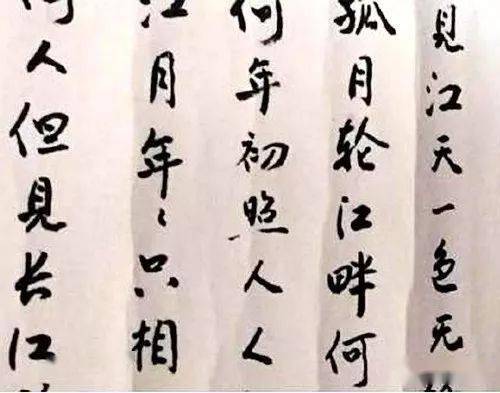 見江天一色无
孤月轮江畔何
何年初照人人
江月年〻只相
何人但見长江